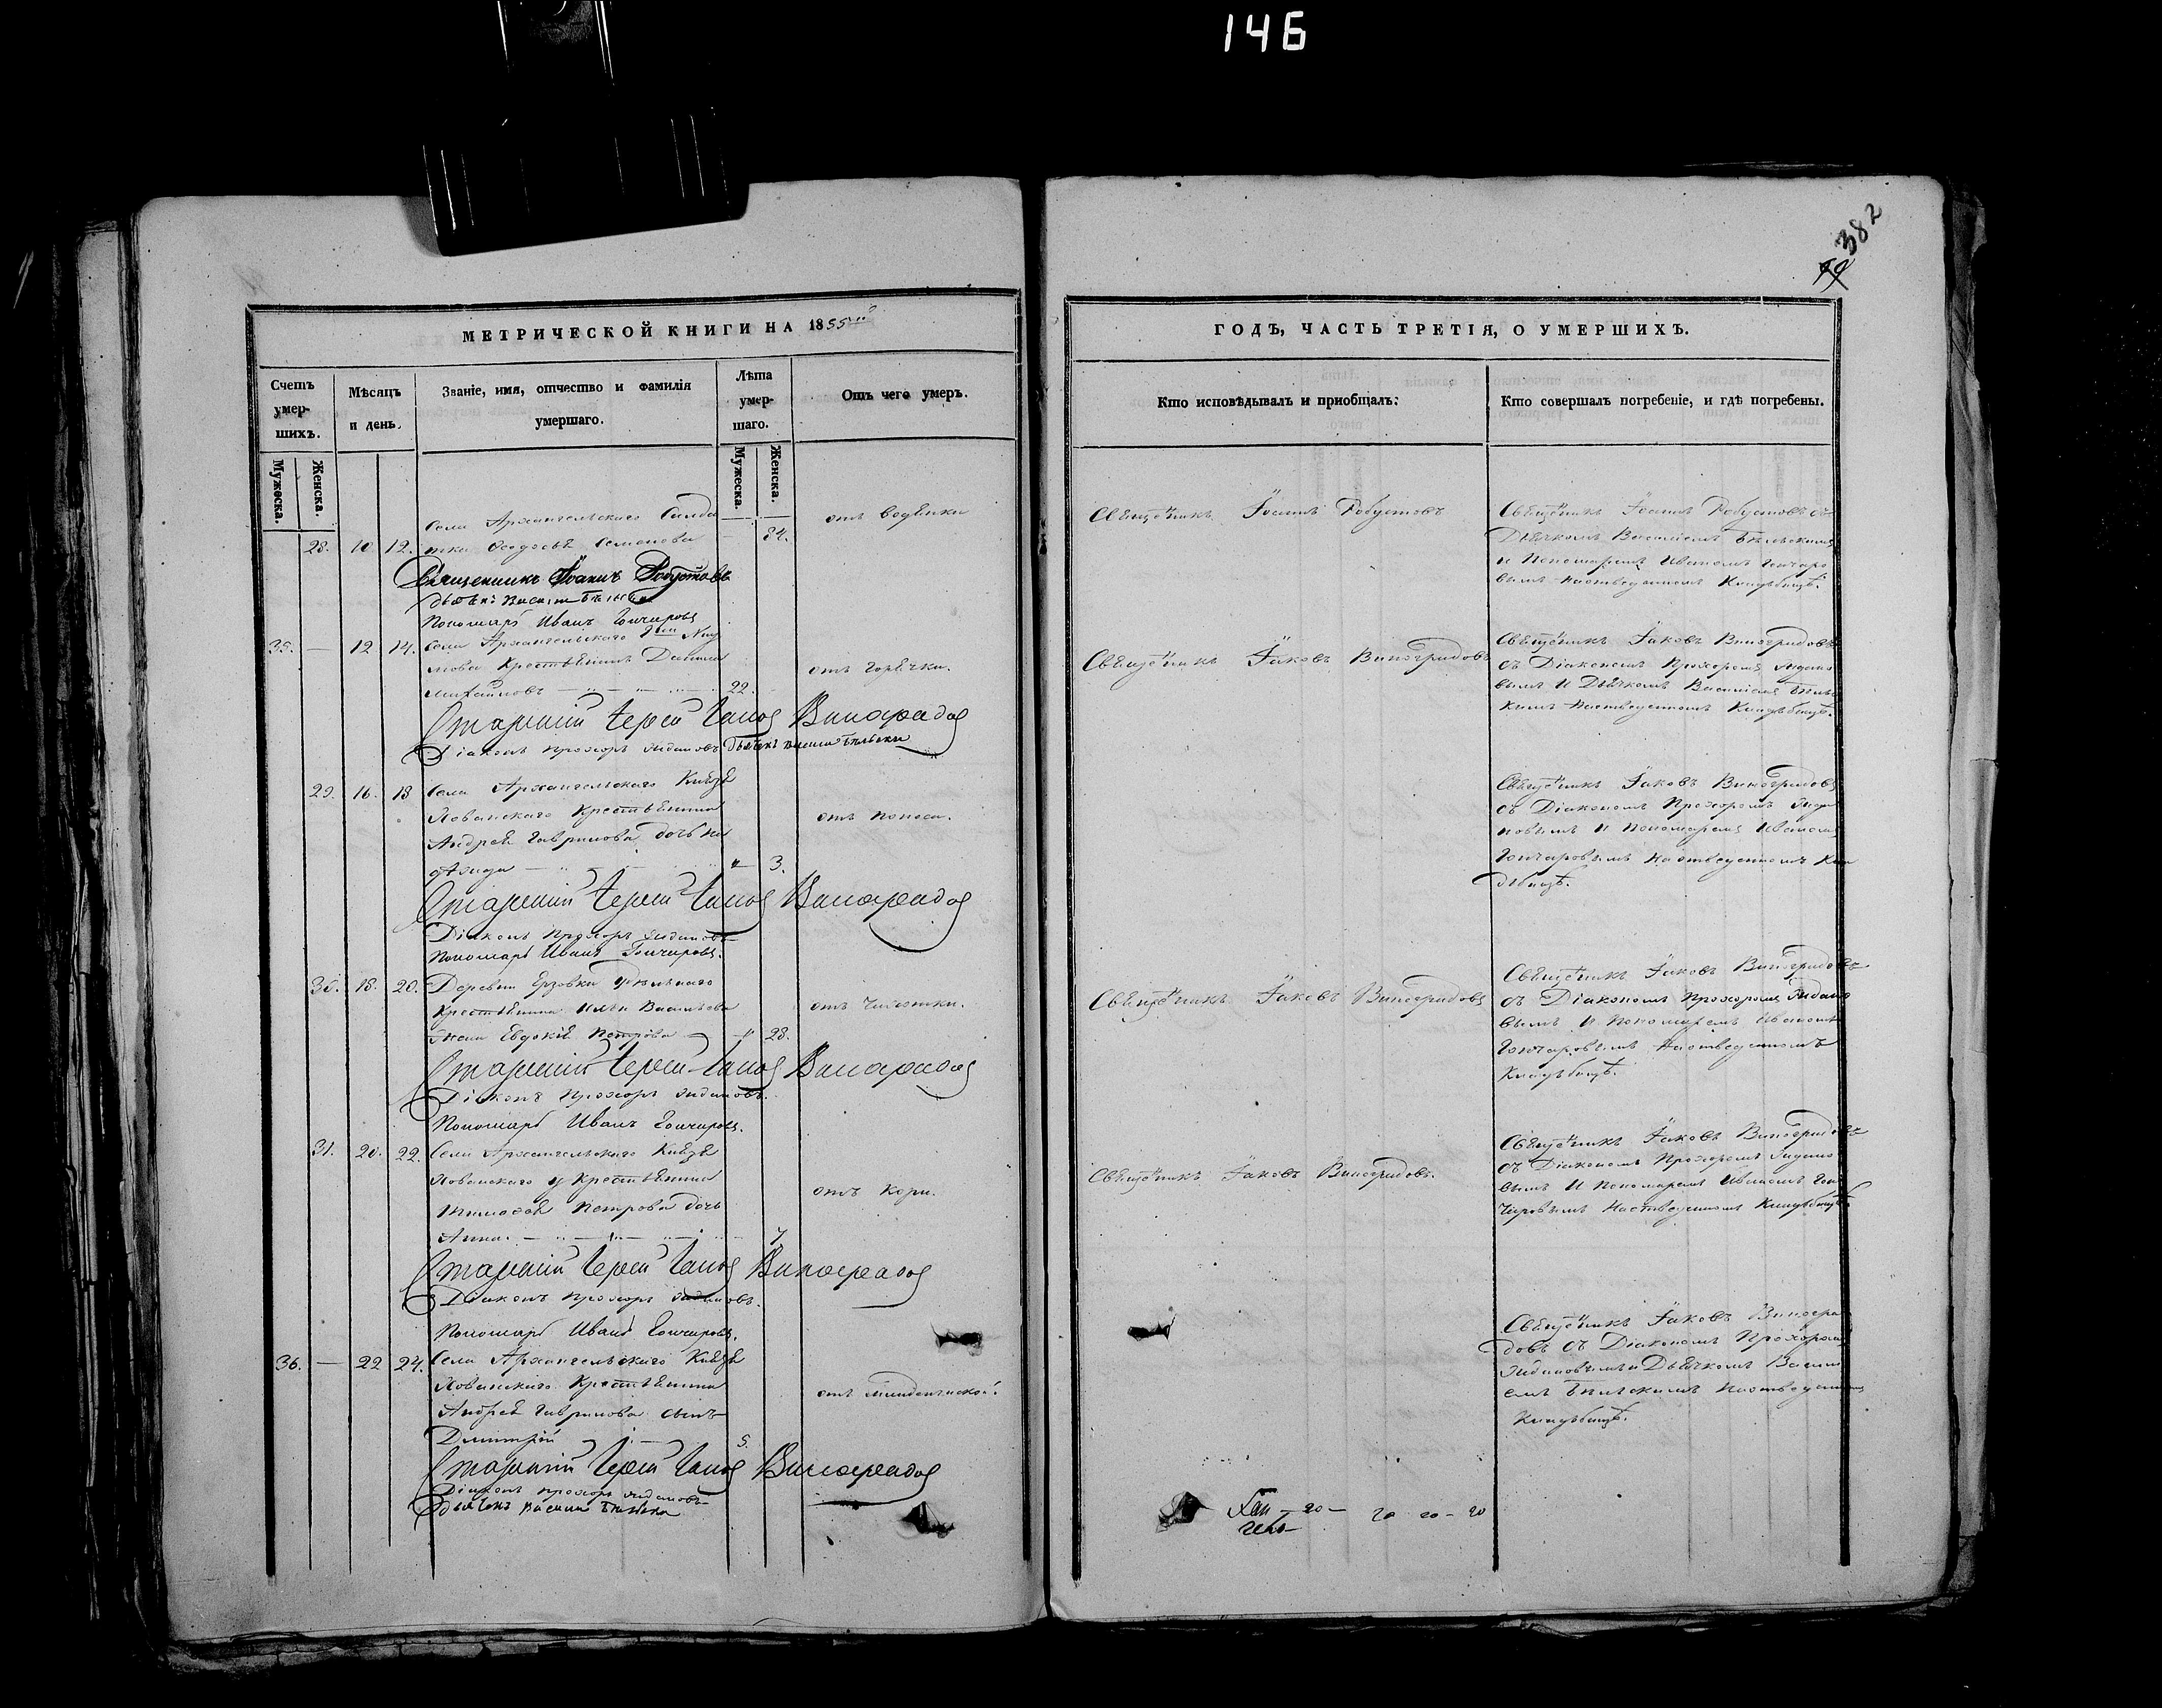 146
382
МЕТРИЧЕСКОЙ КНИГИ НА 1855
Счетъ умер-шихъ.
Мѣсяцъ и день.
Званіе, имя, отчество и фамилія умершаго.
Лѣта умер-шаго.
Отъ чего умеръ.
Мужеска.
Женска.
Мужеска.
Женска.
Села Архангельскаго Солда
28. 10 12. тка Ѳеодосья Семенова
отъ водянки
Священникъ Іоаннъ Робустовъ
Пономарь Иванъ Гончаровъ
35. — 12 14. Села Архангельскаго
Крестьянинъ Данила
Михайловъ 22.
отъ горячки.
Старшій Іерей Іаковъ Виноградовъ
Діаконъ Прохоръ
29. 16. 18 Села Архангельскаго Князя
Хованскаго Крестьянина
Андрея Гаврилова дочь
3.
отъ поноса.
Старшій Іерей Іаковъ Виноградовъ
Діаконъ Прохоръ
Пономарь Иванъ Гончаровъ.
30. 18. 20. Деревни Ерзовки Удѣльнаго
Крестьянина Васильева
жена Евдокія Петрова 28.
отъ чахотки.
Старшій Іерей Іаковъ Виноградовъ
Діаконъ Прохоръ
Пономарь Иванъ Гончаровъ.
31. 20. 22. Села Архангельскаго Князя
Хованскаго Крестьянина
Петрова дочь
Анна. 7.
отъ кори.
Старшій Іерей Іаковъ Виноградовъ
Діаконъ Прохоръ
Пономарь Иванъ Гончаровъ.
36. — 22 24. Села Архангельскаго Князя
Хованскаго Крестьянина
Андрея Гаврилова сынъ
Димитрій 5.
отъ младенческой.
Старшій Іерей Іаковъ Виноградовъ
Діаконъ Прохоръ
ГОДЪ, ЧАСТЬ ТРЕТІЯ, О УМЕРШИХЪ.
Кто исповѣдывалъ и пріобщалъ:
Кто совершалъ погребеніе, и гдѣ погребены.
Священникъ Іоаннъ Робустовъ
Священникъ Іоаннъ Робустовъ съ
Дьячкомъ Василіемъ Бѣльскимъ
и Пономаремъ Иваномъ Гончаро
вымъ на отведенномъ Кладбищѣ.
Священникъ Іаковъ Виноградовъ
Священникъ Іаковъ Виноградовъ
съ Діакономъ Прохоромъ
вымъ и Дьячкомъ Василіемъ Бѣльс
кимъ на отведенномъ Кладбищѣ.
Священникъ Іаковъ Виноградовъ
съ Діакономъ Прохоромъ
новымъ и Пономаремъ Иваномъ
Гончаровымъ на отведенномъ Кла
дбищѣ.
Священникъ Іаковъ Виноградовъ
Священникъ Іаковъ Виноградовъ
съ Діакономъ Прохоромъ
вымъ и Пономаремъ Иваномъ
Гончаровымъ на отведенномъ
Кладбищѣ.
Священникъ Іаковъ Виноградовъ.
Священникъ Іаковъ Виноградовъ
съ Діакономъ Прохоромъ
вымъ и Пономаремъ Иваномъ Гон
чаровымъ на отведенномъ Кладбищѣ.
Священникъ Іаковъ Виногра
довъ съ Діакономъ Прохоромъ
и Дьячкомъ Васили
емъ Бѣльскимъ на отведенномъ
Кладбищѣ.